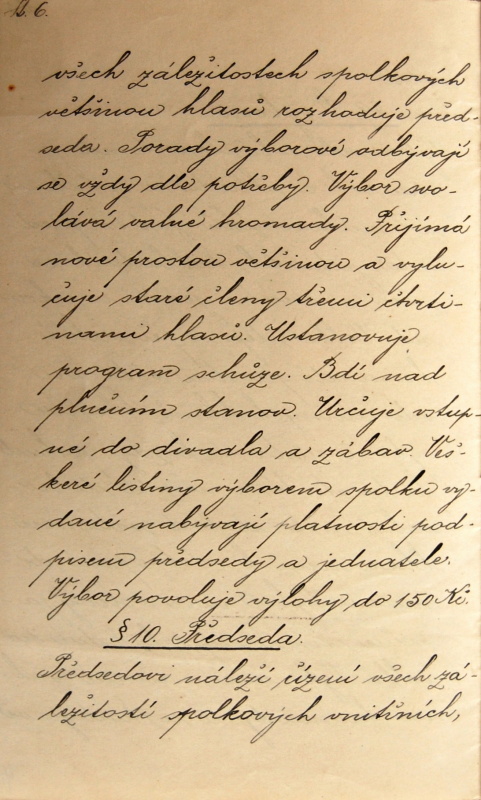 A. 6.
všech záležitostech spolkových
většinou hlasů rozhoduje před-
seda. Porady výborové odbývají
se vždy dle potřeby. Výbor svo-
lává valné hromady. Přijímá
nové prostou většinou a vylu-
čuje staré členy třemi čtvrti-
nami hlasů. Ustanovuje
program schůze. Bdí nad
plněním stanov. Určuje vstup-
né do divadla a zábav. Veš-
keré listiny výborem spolku vy-
dané nabývají platnosti pod-
pisem předsedy a jednatele.
Výbor povoluje výlohy do 150 Kč.
§ 10. Předseda.
Předsedovi náleží řízení všech zá-
ležitostí spolkových vnitřních,